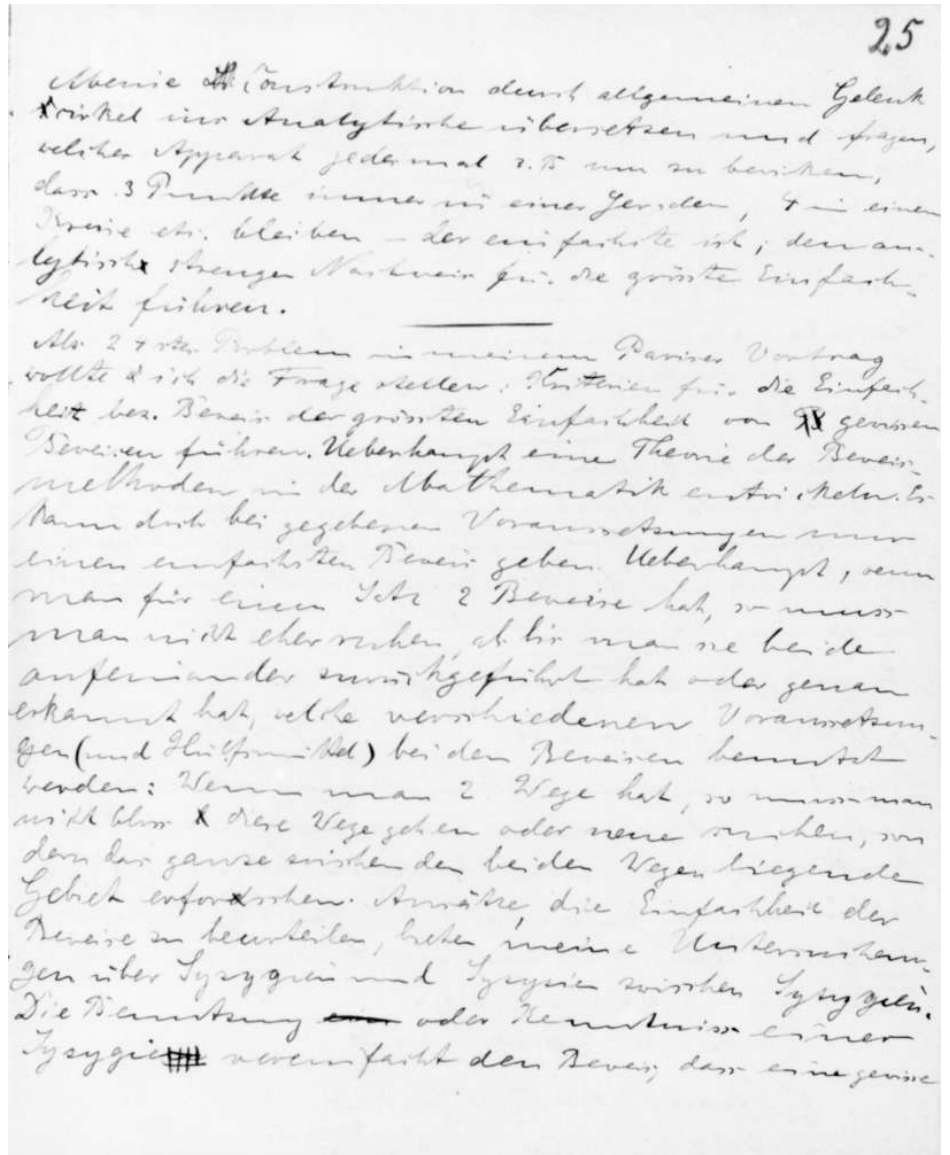 25
Ebenso Construktion durch allgemeinen Gelenk
zirkel ins Analytische übersetzen und fragen,
welcher Apparat jedesmal z. B. um zu bewirken,
dass 3 Punkte immer in einer Geraden, 4 in einem
Kreise etc. bleiben – der einfachste ist; den ana-
lytisch strengen Nachweis für die grösste Einfach-
heit führen.
Als 24stes Problem in meinem Pariser Vortrag
wollte ich die Frage stellen: Kriterien für die Einfach-
heit bez. Beweis der grössten Einfachheit von gewissen
Beweisen führen. Ueberhaupt eine Theorie der Beweis-
methoden in der Mathematik entwickeln. Es
kann doch bei gegebenen Voraussetzungen nur
einen einfachsten Beweis geben. Ueberhaupt, wenn
man für einen Satz 2 Beweise hat, so muss
man nicht eher ruhen, als bis man sie beide
aufeinander zurückgeführt hat oder genau
erkannt hat, welche verschiedenen Voraussetzun-
gen (und Hülfsmittel) bei den Beweisen benutzt
werden: Wenn man 2 Wege hat, so muss man
nicht bloss diese Wege gehen oder neue suchen, son
dern das ganze zwischen den beiden Wegen liegende
Gebiet erforschen. Ansätze, die Einfachheit der
Beweise zu beurteilen, bieten meine Untersuchun-
gen über Syzygien und Syzygien zwischen Syzygien.
Die Benutzung oder Kenntniss einer
Syzygie vereinfacht den Beweis, dass eine gewisse